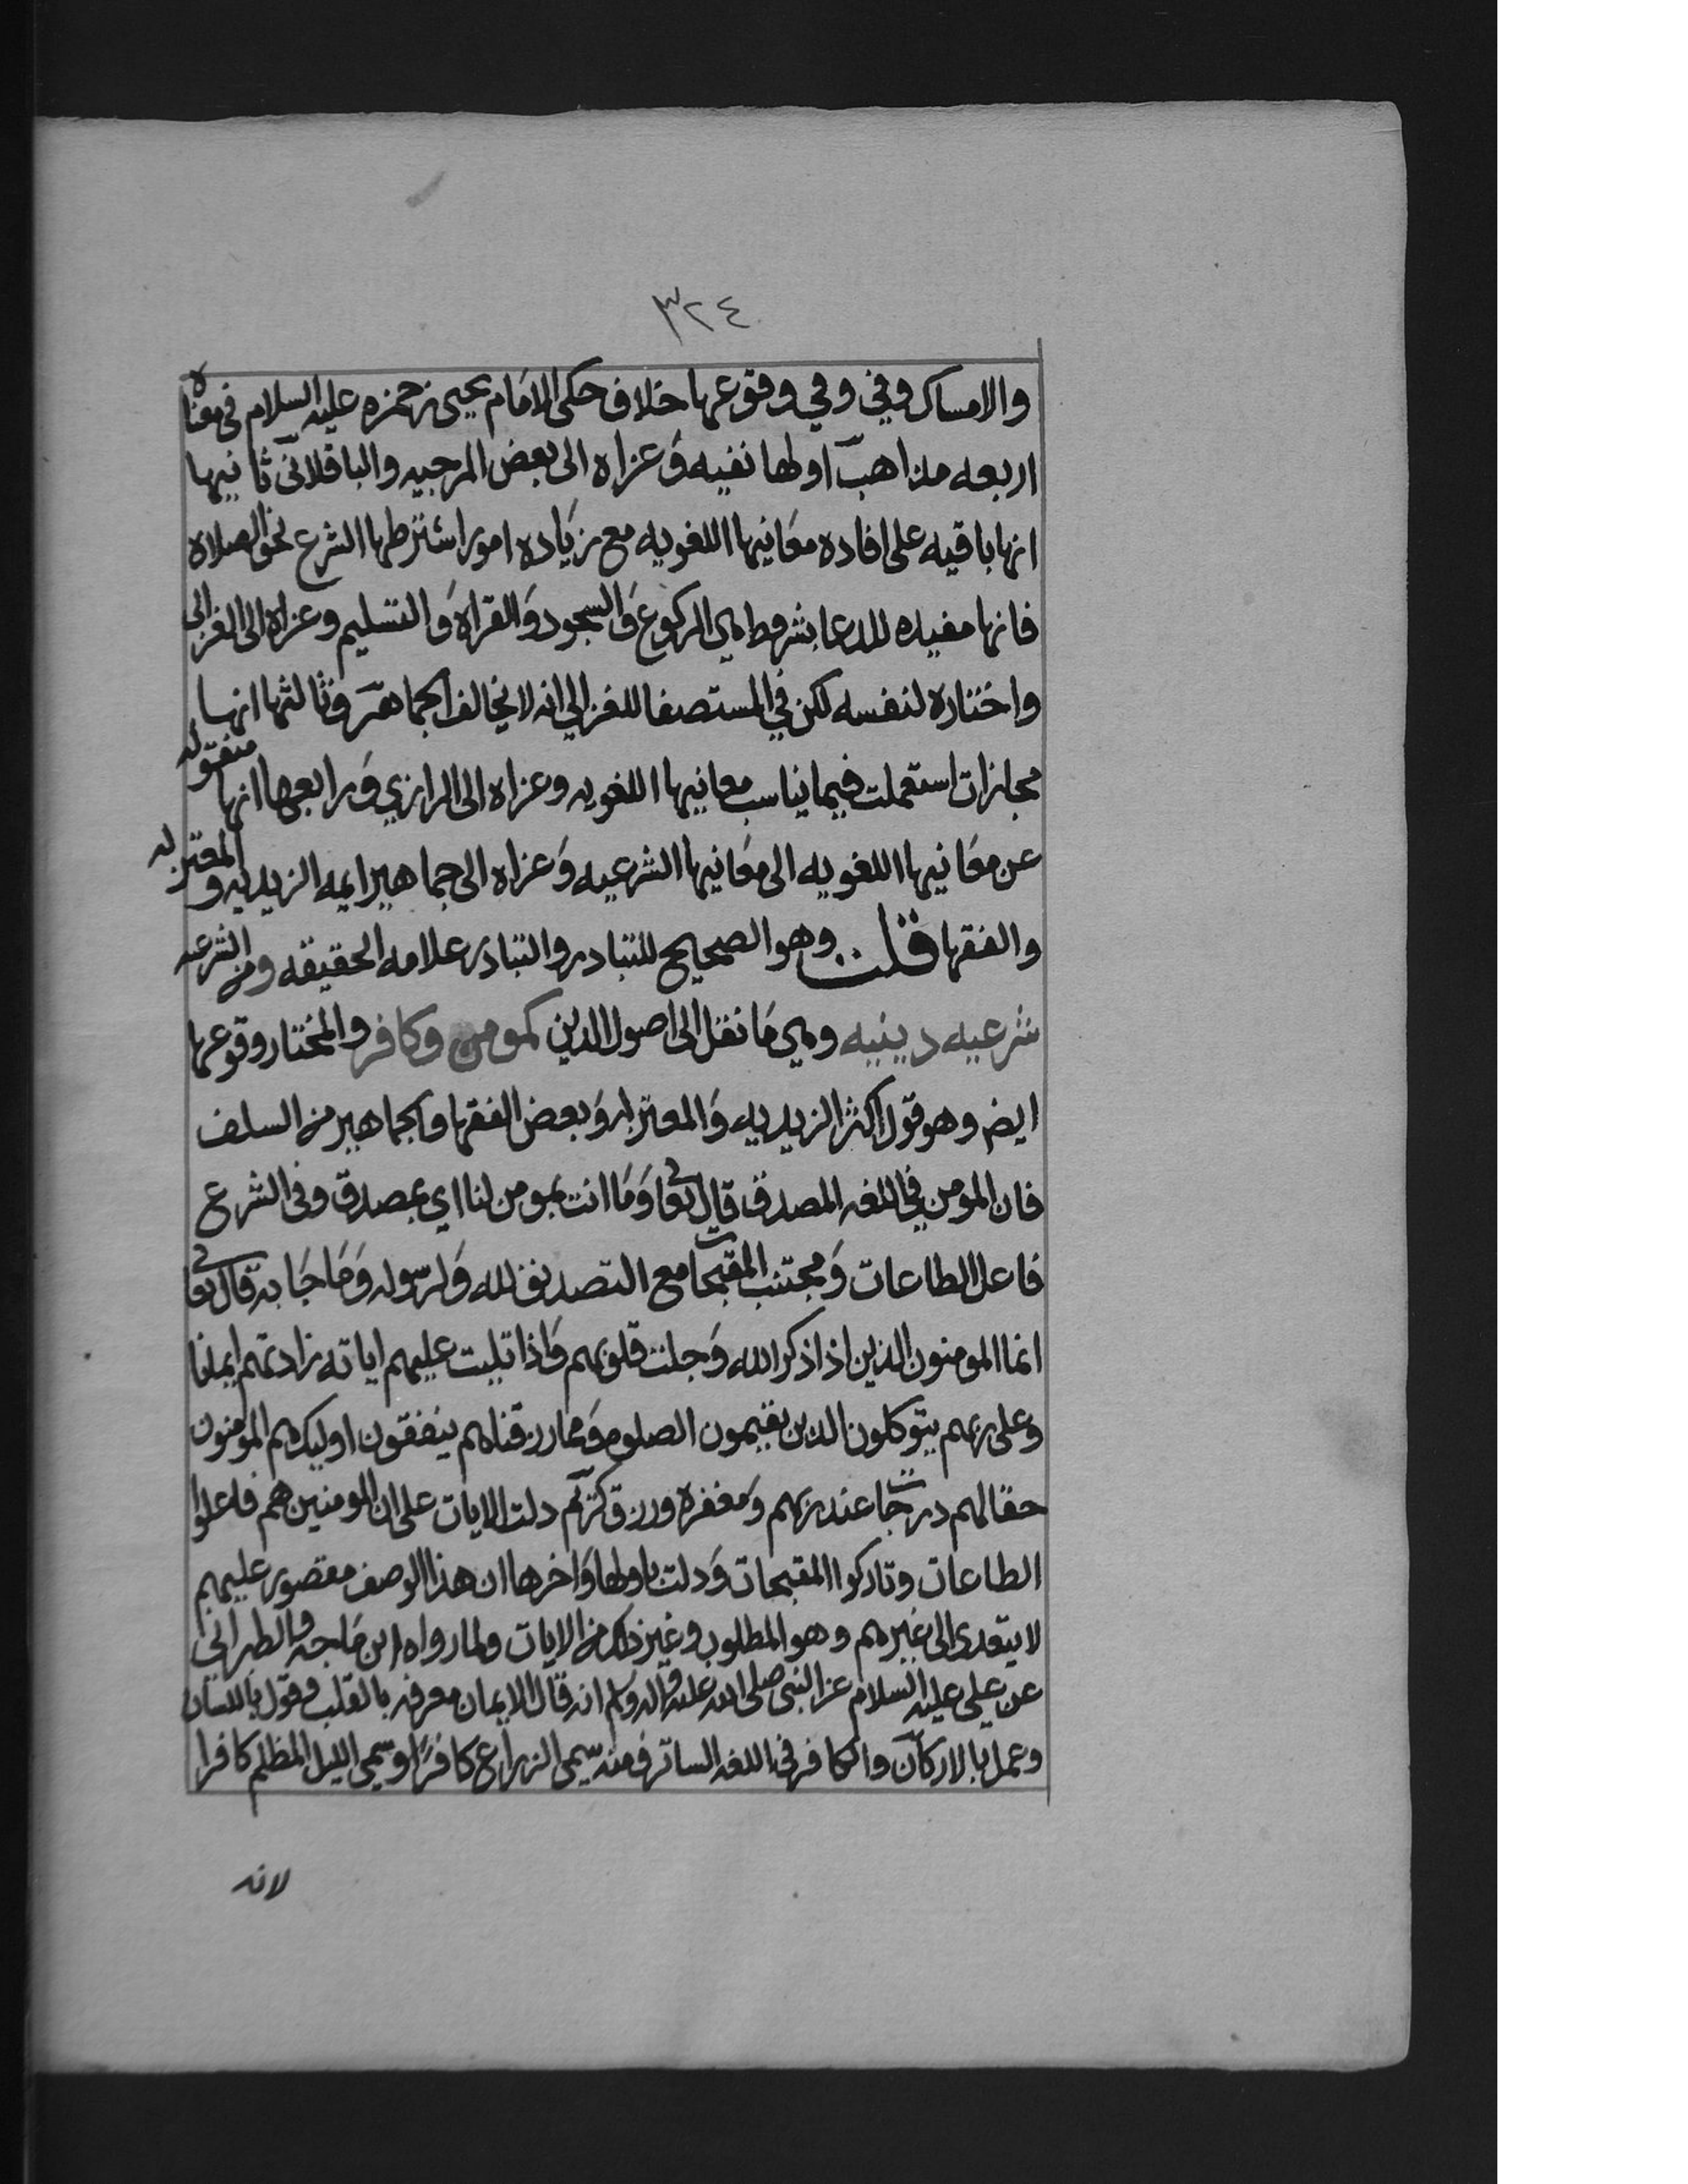 ٣٢٤
والامساك وفي وفي وقوعها خلاف حكى الامام يحيى بن حمزه عليه السلام في معناه
اربعه مذاهب اولها نفيه وعزاه الى بعض المرجيه والباقلاني ثانيها
انها باقيه على افاده معانيها اللغويه مع زياده امور اشترطها الشرع نحو الصلاه
فانها مفيده للدعا بشروط هي الركوع والسجود والقراة والتسليم وعزاه الى الغزالي
واختاره لنفسه لكن في المستصفا للغزالي انه لا يخالف الجماهر وثالثها انها
مجازات استعملت فيما يناسب معانيها اللغويه وعزاه الى الرازي ورابعها انها منقوله
عن معانيها اللغويه الى معانيها الشرعيه وعزاه الى جماهير ايمه الزيديه والمعتزله
والفقها قلت وهو الصحيح للتبادر والتبادر علامه الحقيقه ومن الشرعيه
شرعيه دينيه وهي ما نقل الى اصول الدين كمومن وكافر والمختار وقوعها
ايض وهو قول اكثر الزيديه والمعتزله وبعض الفقها والجماهير من السلف
فان المومن في اللغه المصدق قال تعالى وما انت بمومن لنا اي بمصدق وفي الشرع
فاعل الطاعات ومجتنب المقبحات مع التصديق لله ولرسوله وما جا به قال تعالى
انما المومنون الذين اذا ذكر الله وجلت قلوبهم واذا تليت عليهم اياته زادتهم ايمانا
وعلى ربهم يتوكلون الذين يقيمون الصلوه ومما رزقناهم ينفقون اوليك هم المومنون
حقا لهم درجات عند ربهم ومغفره ورزق كريم دلت الايات على ان المومنين هم فاعلوا
الطاعات وتاركوا المقبحات ودلت باولها واخرها ان هذا الوصف مقصور عليهم
لا يتعدى الى غيرهم وهو المطلوب وغير ذلك من الايات ولما رواه ابن ماجه والطبراني
عن علي عليه السلام عن النبي صلى الله عليه واله وسلم انه قال الايمان معرفه بالقلب وقول باللسان
وعمل بالاركان والكافر في اللغه الساتر ومنه سمي الزراع كافرا وسمي الليل المظلم كافرا
لانه